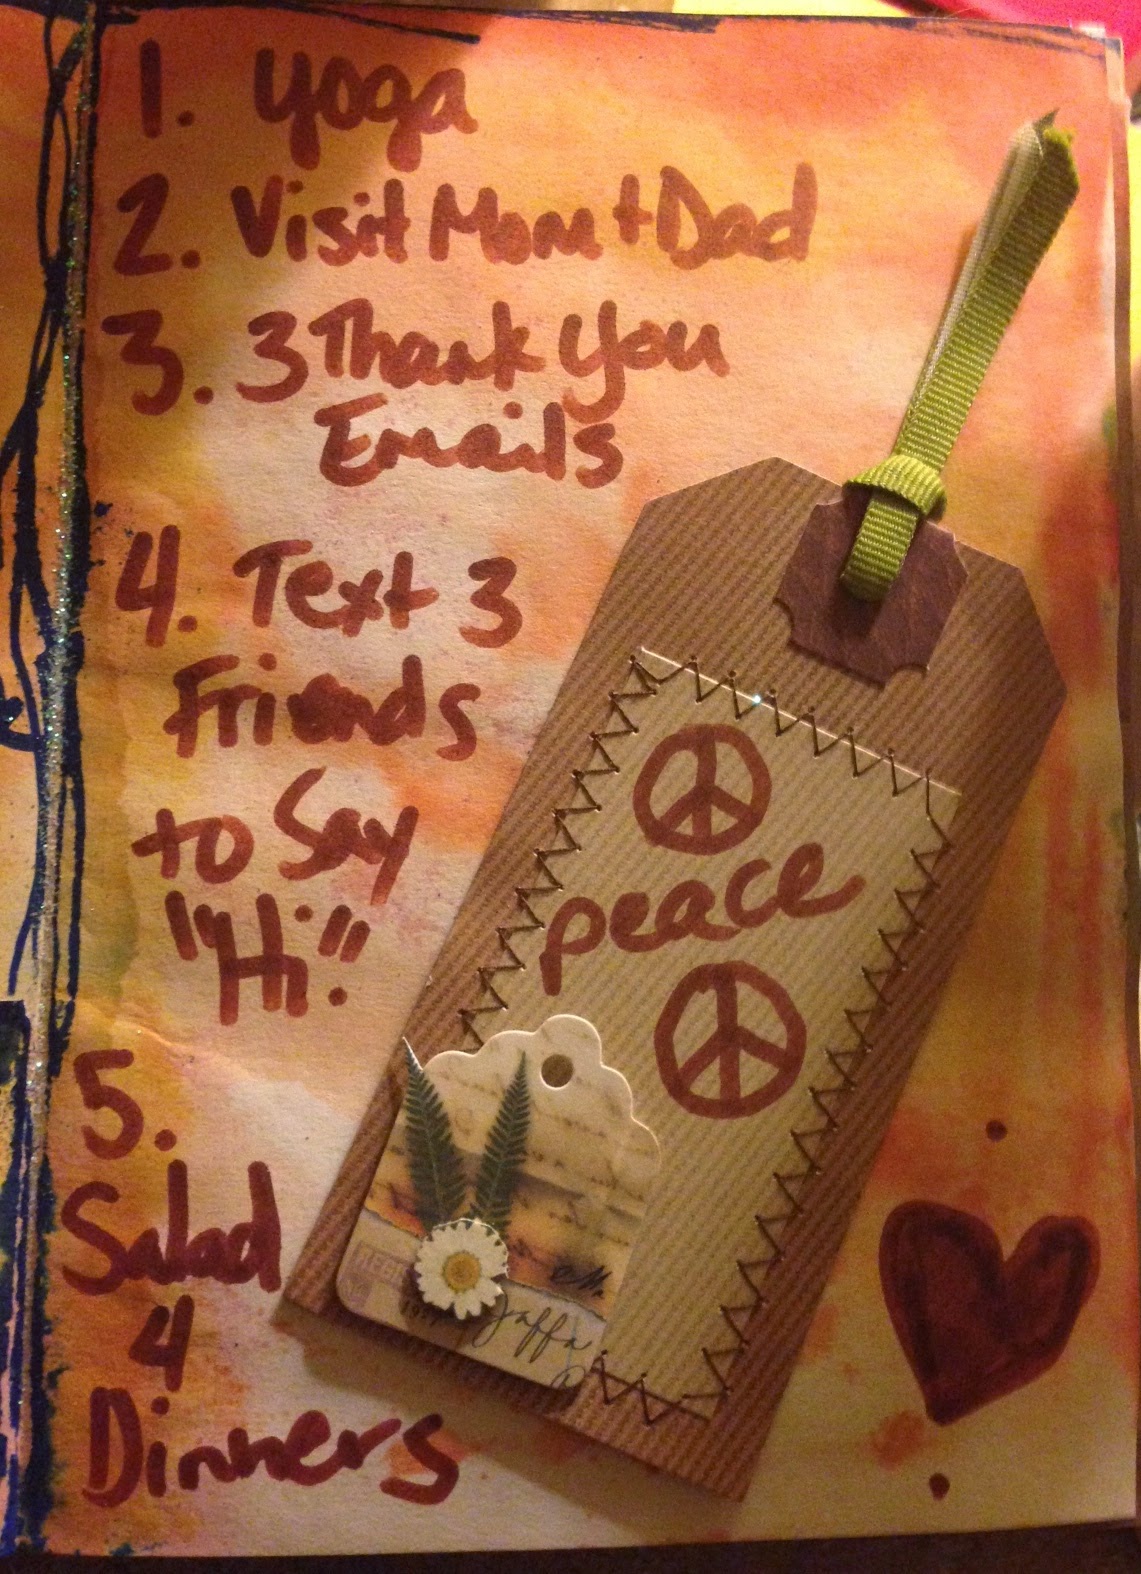 1. Yoga
2. Visit Mom + Dad
3. 3 Thank You
Emails
4. Text 3
Friends
to Say
"Hi!"
5.
Salad
4
Dinners
peace
Jaffa